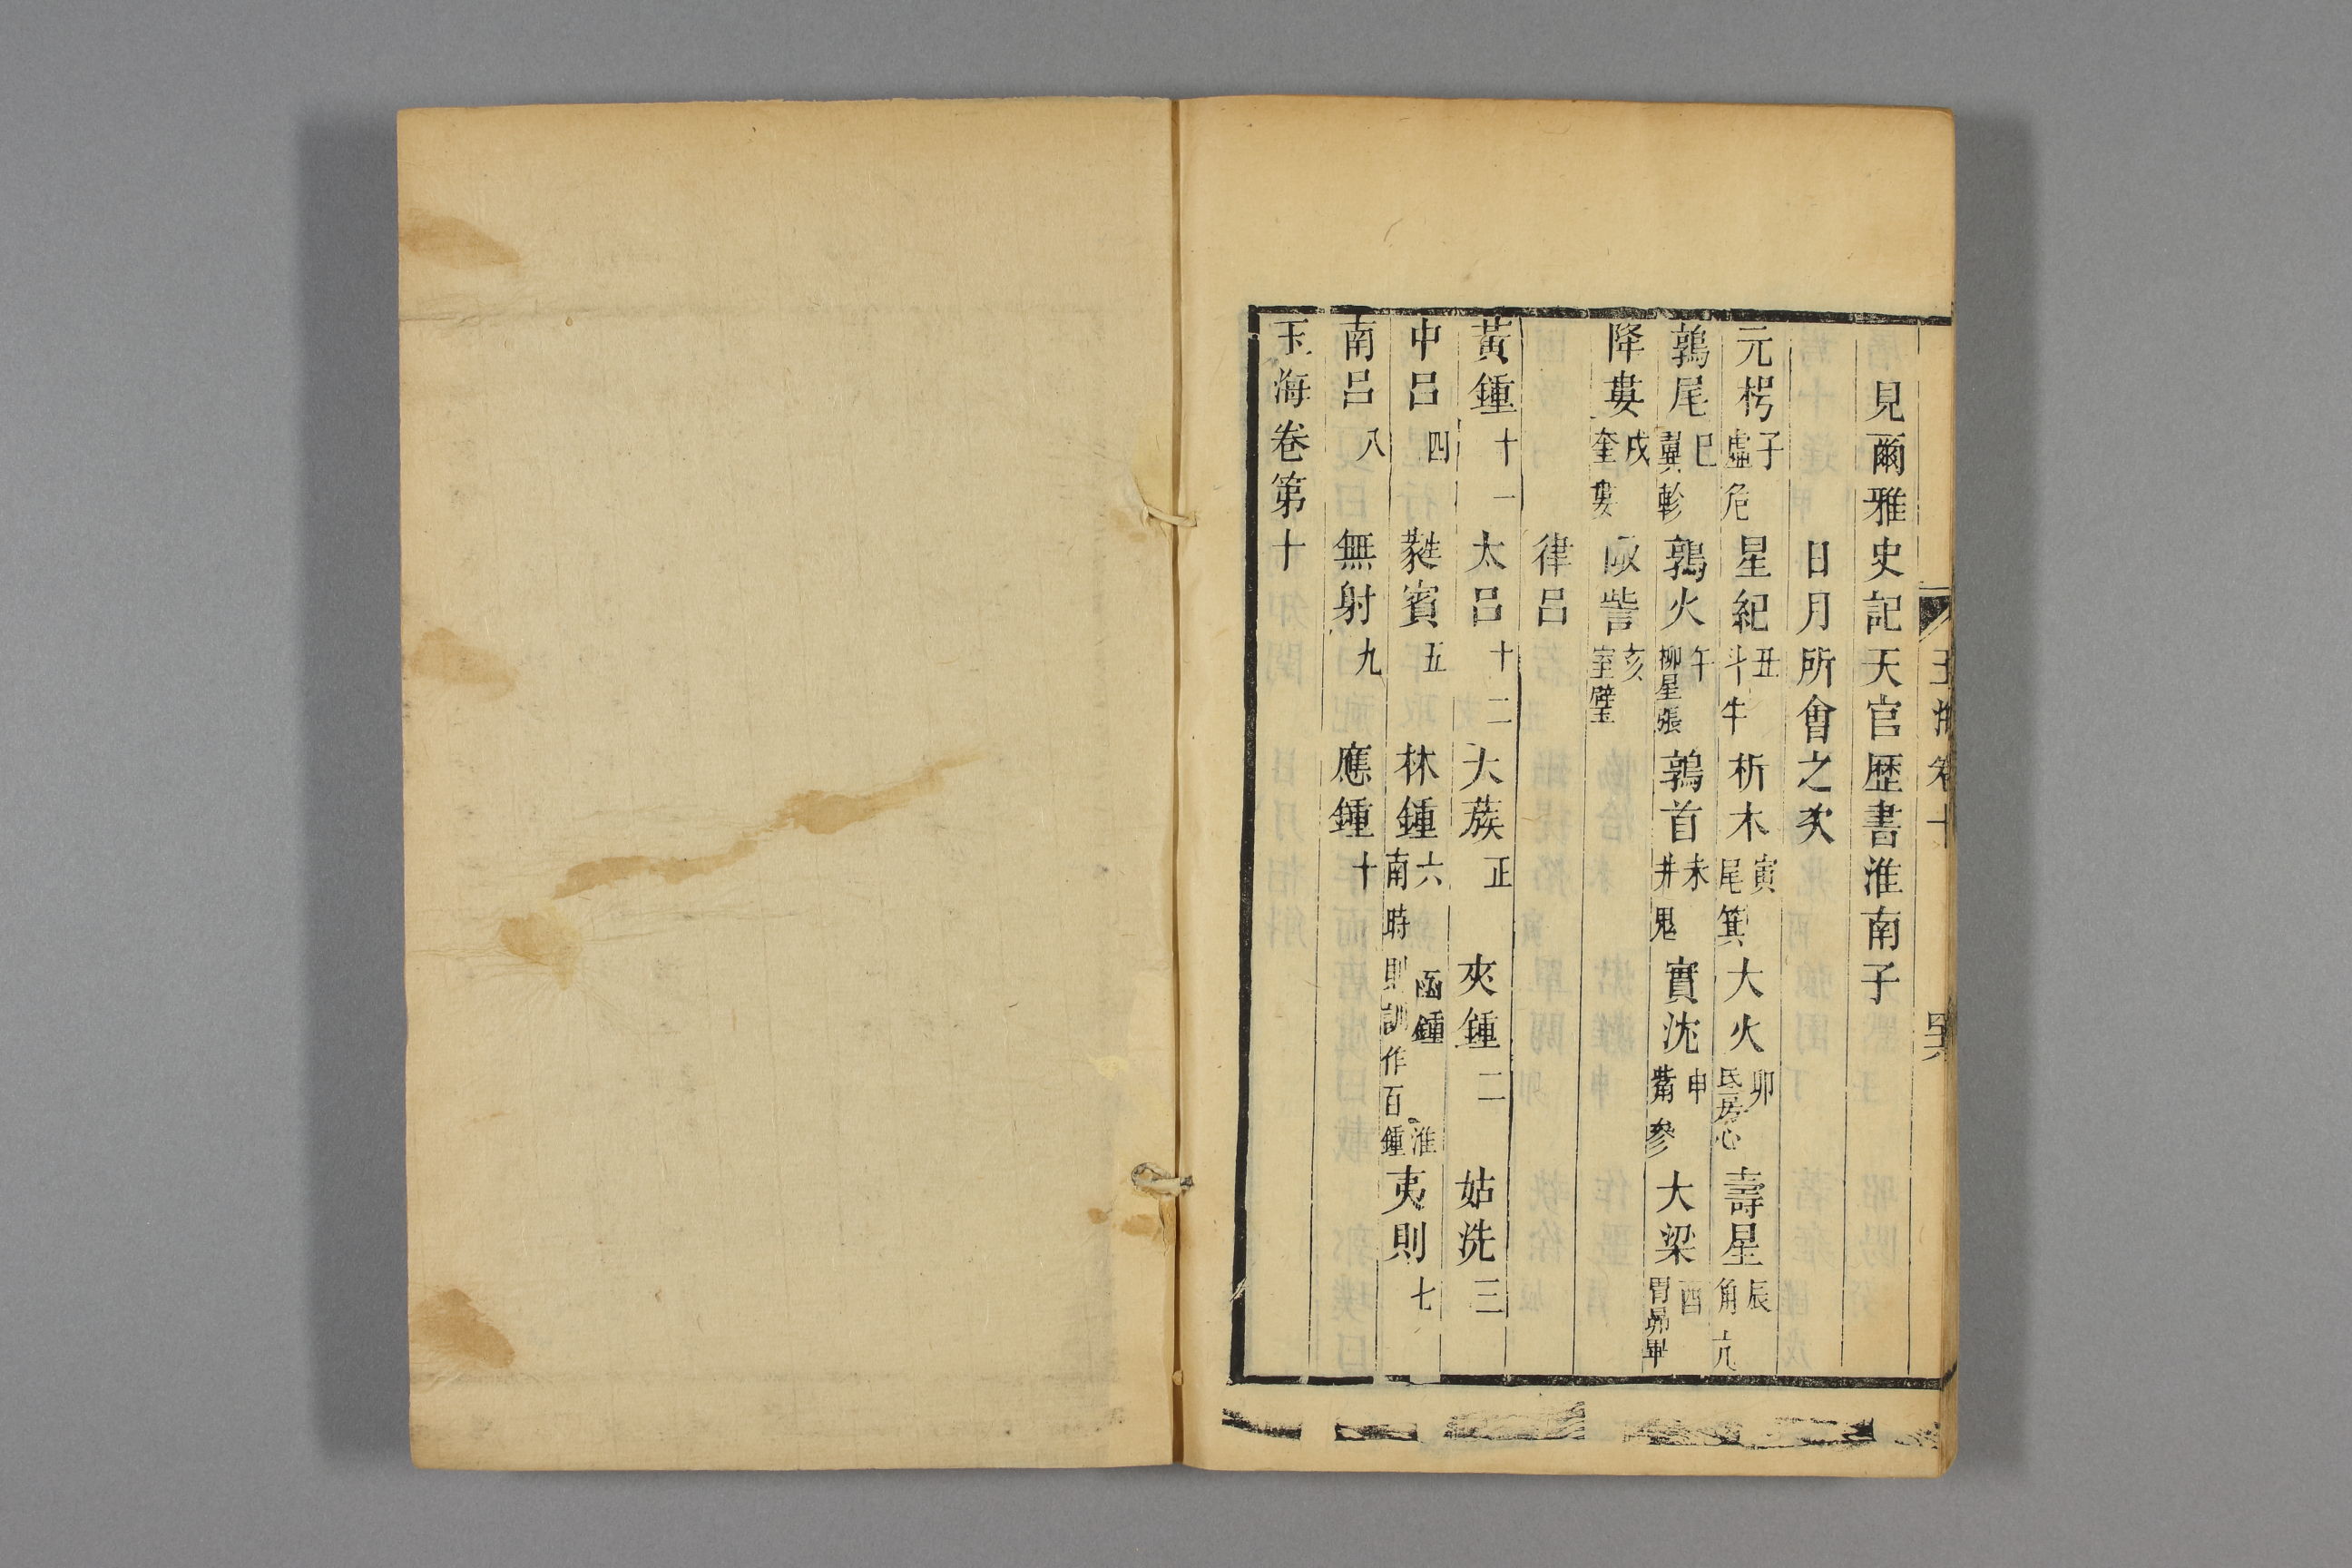 玉海卷十
見爾雅史記天官歷書淮南子
日月所會之次
元枵子虛危 星紀丑斗牛 析木寅尾箕 大火卯氐房心 壽星辰角亢
鶉尾巳翼軫 鶉火午柳星張 鶉首未井鬼 實沈申觜參 大梁酉胃昴畢
降婁戌奎婁 娵訾亥室壁
律呂
黃鍾十一 太呂十二 大蔟正 夾鍾二 姑洗三
中呂四 蕤賓五 林鍾六 函鍾 淮南時則訓作百鍾 夷則七
南呂八 無射九 應鍾十
玉海卷第十